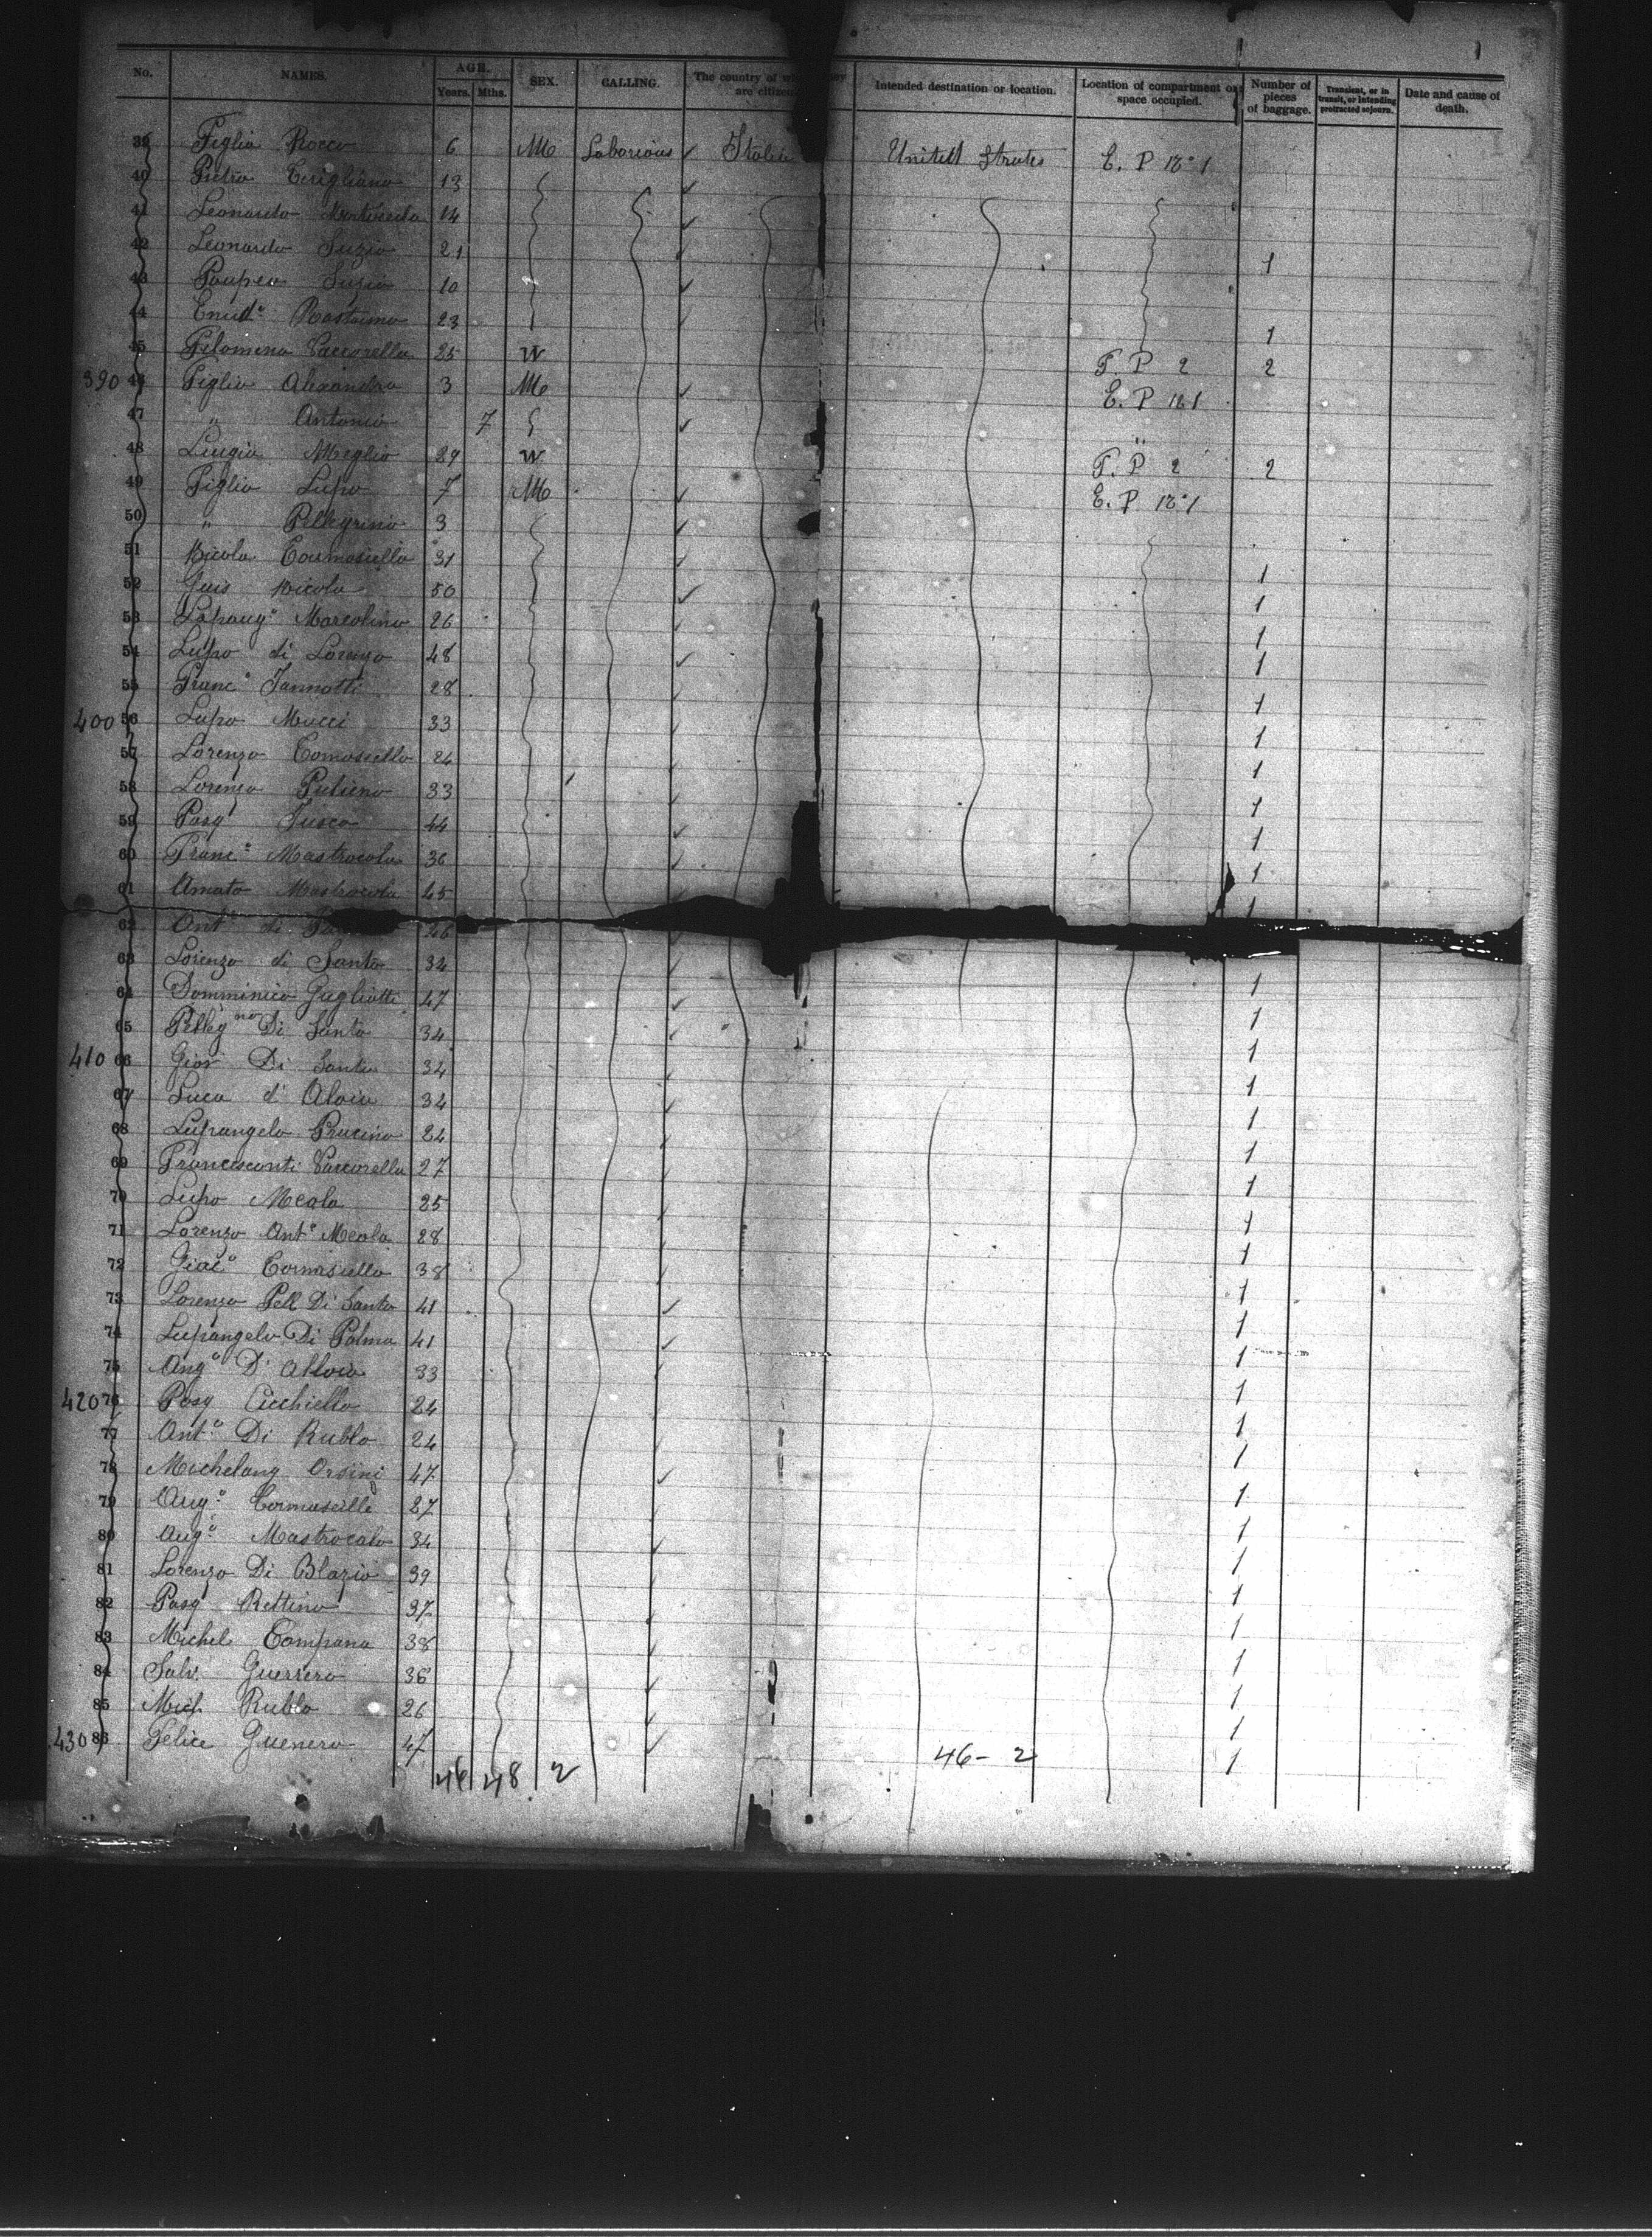 No. NAMES. AGE. Years. Mths. SEX. CALLING. The country of are citizen Intended destination or location. Location of compartment or space occupied. Number of pieces of baggage. Transient, or in transit, or intending protracted sojourn. Date and cause of death.
39 Figlio Rocco 6 M Laborious Italia United States E. P No 1
40 Pietro Cirigliano 13
41 Leonardo 14
42 Leonardo Suzio 21 1
43 Pompeo Suzio 10
44 23 1
45 Filomena Vaccarella 25 W F. P 2 2
390 46 Figlio Alexandro 3 M E. P No 1
47 " Antonio 7 "
48 Luigia Meglio 29 W F. P 2 2
49 Figlio Lupo 7 M E. P No 1
50 " Pellegrino 3
51 Nicola Cormosiello 31 1
52 Nicola 50 1
53 Marcolino 26 1
54 Lupo di Lorenzo 48 1
55 Franco Iannotti 28 1
400 56 Lupo Mucci 33 1
57 Lorenzo Comosciello 24 1
58 Lorenzo 33 1
59 Pasq Fusco 44 1
60 Franco Mastrocola 36 1
61 Amato Mastrocola 45 1
62 Anto di 26
63 Lorenzo di Santo 34 1
64 Domminico Gugliotti 47 1
65 Pelleg no Di Santo 34 1
410 66 Giov Di Santo 34 1
67 Luca d' Aloia 34 1
68 Lupangelo 24 1
69 Vaccarella 27 1
70 Lupo Meola 25 1
71 Lorenzo Anto Meola 28 1
72 Giaco Cormisiello 38 1
73 Lorenzo Pell Di Santo 41 1
74 Lupangelo Di Palma 41 1
75 Ango D' Alloia 33 1
420 76 Pasq Cicchiello 24 1
77 Anto Di Rubbo 24 1
78 Michelang Orsini 47 1
79 Ango 27 1
80 Ango Mastrocola 34 1
81 Lorenzo Di Blazio 39 1
82 Pasq Rettino 37 1
83 Michel Compana 38 1
84 Salv. Guerrero 36 1
85 Mich Rubbo 26 1
430 86 Felice Guerrero 47 1
46 48 2 46-2